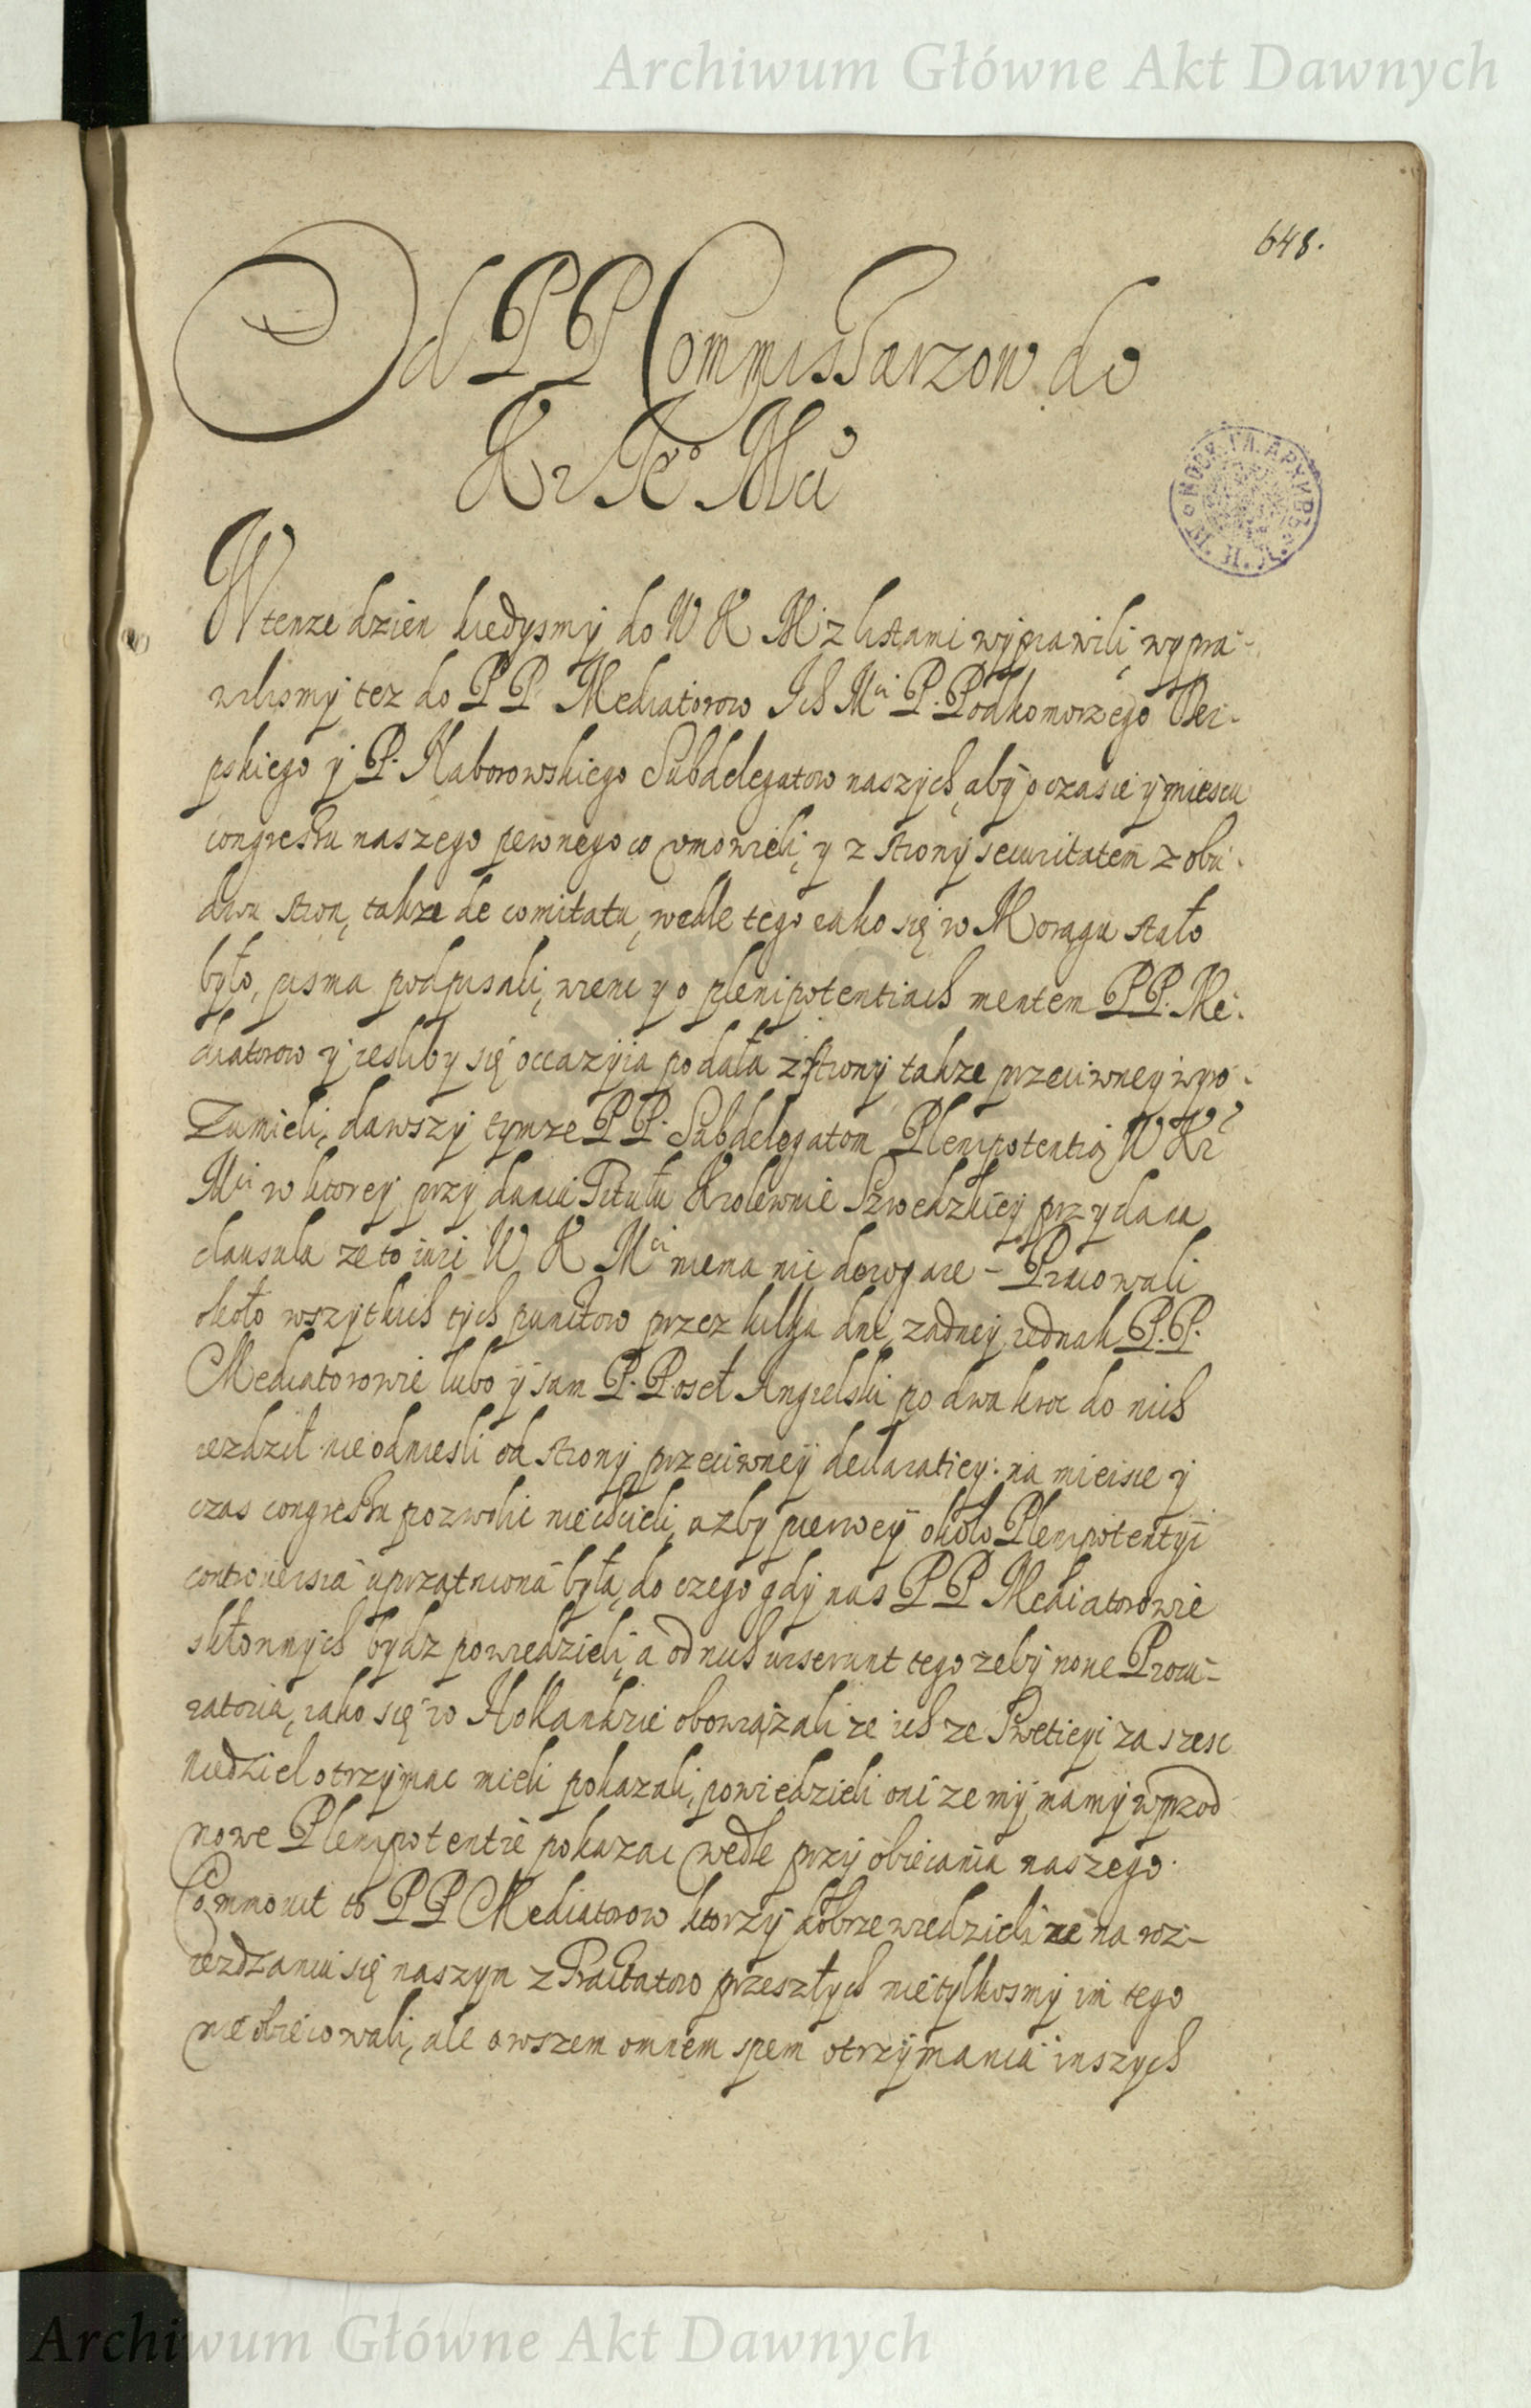 Archiwum Główne Akt Dawnych
648.
Od PP Commissarzow do
Kr Je° Mci
W tenze dzien kiedysmy do W K Mci z listami wyprawili, wypra-
wilismy tez do PP Mediatorow Ich Mci P. Podkomorzego Der-
pskiego y P. Naborowskiego Subdelegatow naszych, aby o czasie y miescu
congressu naszego pewnego co vmowieli, y z strony securitatem z obu
dwu stron, takze de comitatu, wedle tego iako się w Morągu stało
było, pisma podpisali, wienc y o plenipotentiach mentem PP. Me-
diatorow y iesliby się occazyia podała z strony takze przeciwney wyro-
zumieli, dawszy tymze PP. Subdelegatom Plenipotentią W Kr
Mci w ktorey przy daniu Titułu Krolewnie Szwedzkiey przydana
clausula ze to iuri W K Mci niema nic derogare - Pracowali
około wszytkich tych punctow przez kilka dni, zadney iednak P.P.
Mediatorowie lubo y sam P. Poseł Angielski po dwa kroc do nich
iezdził nie odniesli od strony przeciwney declaratiey: na mieisce y
czas congressu pozwolic niechcieli, azby pierwey około Plenipotentyi
controuersia uprzątniona była, do czego gdy nas PP Mediatorowie
skłonnych bydz powiedzieli, a od nich urserunt tego zeby nowe Procu-
ratoria, iako się w Hollandzie obowiązali ze ich ze Swetieyi za szesc
niedziel otrzymac mieli pokazali, powiedzieli oni ze my mamy wprzod
nowe Plenipotentie pokazac wedle przyobiecania naszego.
Commouit to PP Mediatorow ktorzy dobrze wiedzieli ze na roz-
iezdzaniu się naszym z Tractatow przeszłych nietylkosmy im tego
nie obiecowali, ale owszem omnem spem otrzymania inszych
Archiwum Główne Akt Dawnych